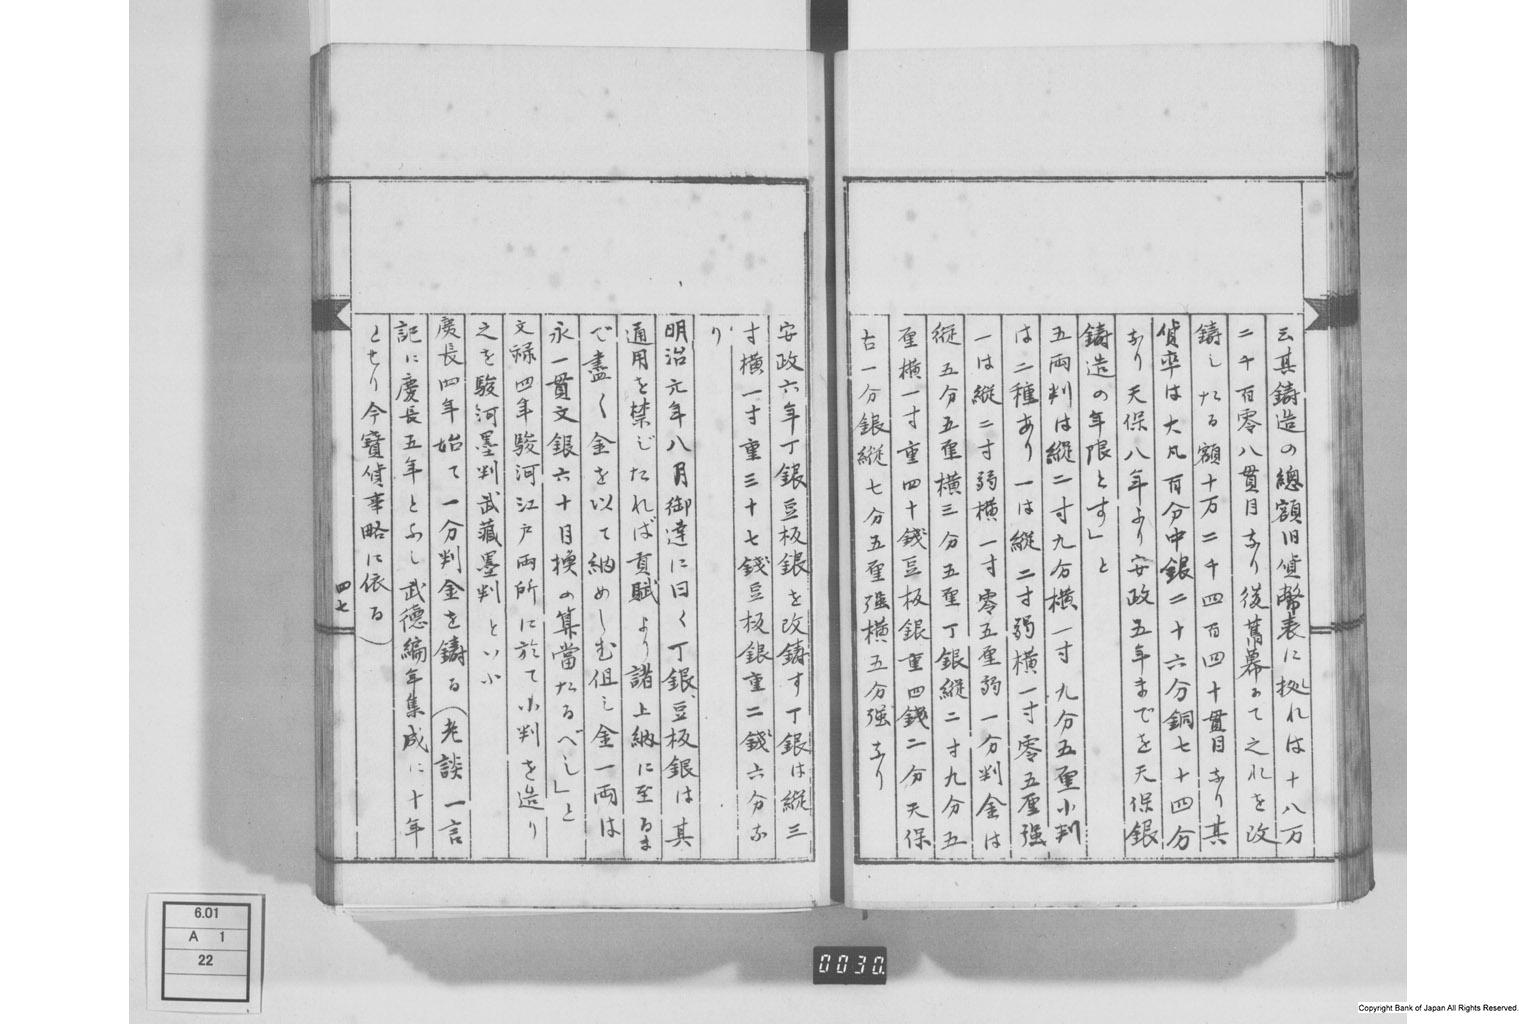 云其鋳造の總額旧貨幣表に拠れは十八万
二千百零八貫目なり後舊幕にて之れを改
鋳したる額十万二千四百四十貫目なり其
貨率は大凡百分中銀二十六分銅七十四分
なり天保八年より安政五年までを天保銀
鋳造の年限とす」と
五両判は縦二寸九分横一寸九分五厘小判
は二種あり一は縦二寸弱横一寸零五厘強
一は縦二寸弱横一寸零五厘弱一分判金は
縦五分五厘横三分五厘丁銀縦二寸九分五
厘横一寸重四十錢豆板銀重四錢二分天保
古一分銀縦七分五厘強横五分強なり
安政六年丁銀豆板銀を改鋳す丁銀は縦三
寸横一寸重三十七錢豆板銀重二錢六分な
り
明治元年八月御達に曰く丁銀、豆板銀は其
通用を禁じたれば貢賦より諸上納に至るま
で盡く金を以て納めしむ但し金一両は
永一貫文銀六十目換の算當たるべし」と
文禄四年駿河江戸両所に於て小判を造り
之を駿河墨判武蔵墨判といふ
慶長四年始て一分判金を鋳る（老談一言
記に慶長五年となし武德編年集成に十年
とせり今寶貨事略に依る）
四七
6.01
A 1
22
0030.
Copyright Bank of Japan All Rights Reserved.